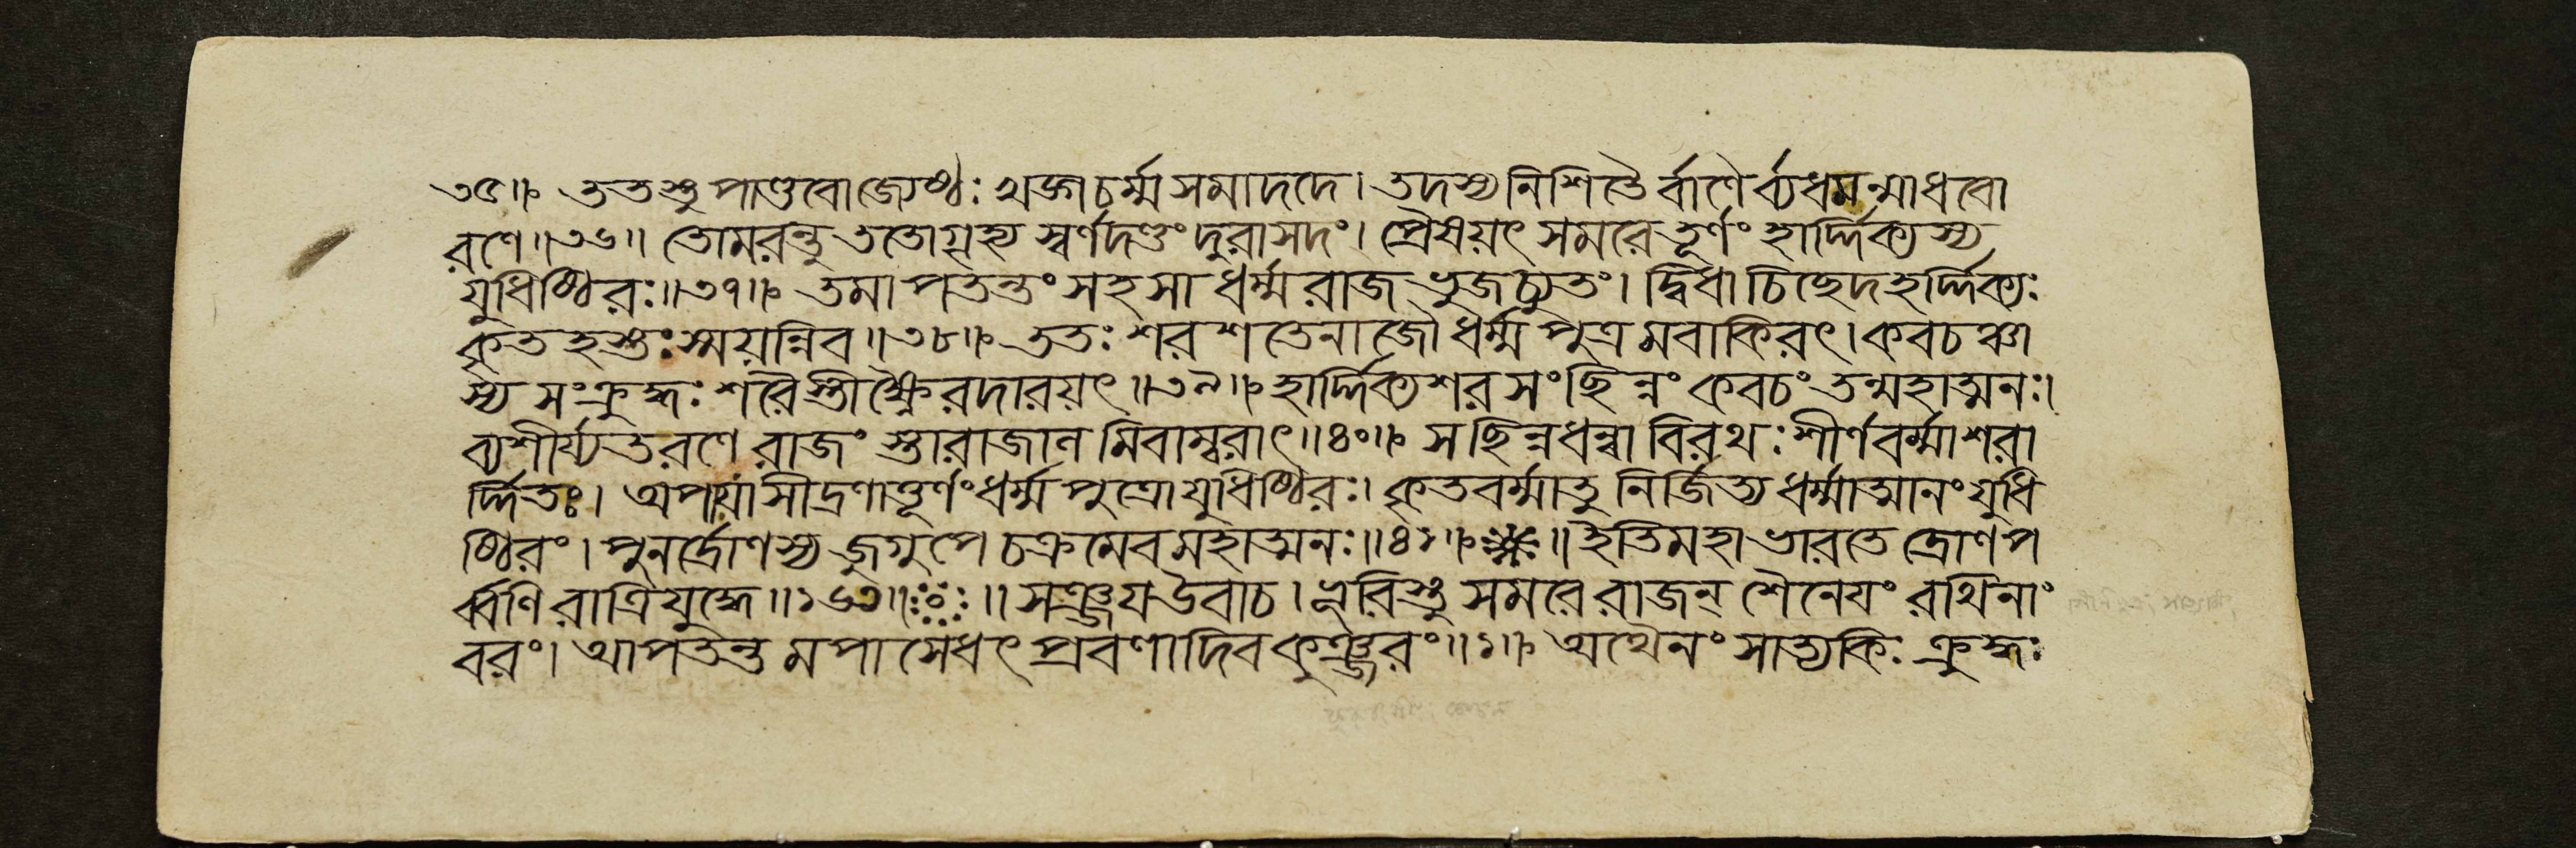 ৩৫॥ ততস্তু পাণ্ডবোজ্যেষ্ঠঃ খড়্গচর্ম্ম সমাদদে। তদস্য নিশিতৈর্বাণৈর্ব্যধমন্মাধবো
রণে॥৩৬॥ তোমরন্তু ততোগৃহ্য স্বর্ণদণ্ডং দুরাসদং। প্রৈষয়ৎ সমরে তূর্ণং হার্দ্দিক্যস্য
যুধিষ্ঠিরঃ॥৩৭॥ তমাপতন্তং সহসা ধর্ম্মরাজ ভুজচ্যুতং। দ্বিধা চিছেদ হর্দ্দিক্যঃ
কৃতহস্তঃ স্ময়ন্নিব॥৩৮॥ ততঃ শরশতেনাজৌ ধর্ম্মপুত্রমবাকিরৎ। কবচঞ্চা
স্য সংক্রুদ্ধঃ শরৈস্তীক্ষ্ণৈরদারয়ৎ॥৩৯॥ হার্দ্দিক্যশরসংছিন্নং কবচং তন্মহাত্মনঃ।
ব্যশীর্য্যত রণে রাজং স্তারাজানমিবাম্বরাৎ॥৪০॥ স ছিন্নধন্বা বিরথঃ শীর্ণবর্ম্মা শরা
র্দ্দিতঃ। অপায়াসীদ্রণাত্তূর্ণং ধর্ম্মপুত্রো যুধিষ্ঠিরঃ। কৃতবর্ম্মাতু নির্জিত্য ধর্ম্মাত্মানং যুধি
ষ্ঠিরং। পুনর্দ্রোণস্য জুগুপে চক্রমেব মহাত্মনঃ॥৪১॥ ॥ইতি মহাভারতে দ্রোণপ
র্ব্বণি রাত্রিযুদ্ধে॥১৬৩॥ ॥ সঞ্জয উবাচ। ভূরিস্তু সমরে রাজন্ শৈনেযং রথিনাং
বরং। আপতন্তমপাসেধৎ প্রবণাদিব কুঞ্জরং॥১॥ অথৈনং সাত্যকিঃ ক্রুদ্ধঃ